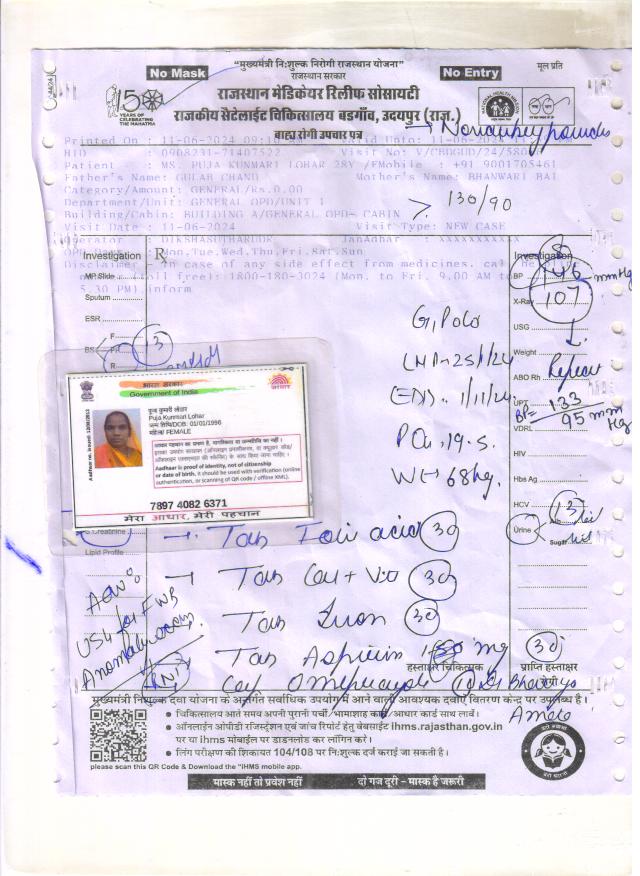 "मुख्यमंत्री नि:शुल्क निरोगी राजस्थान योजना"
मूल प्रति
No Mask
राजस्थान सरकार
No Entry
राजस्थान मेडिकेयर रिलीफ सोसायटी
150
YEARS OF
CELEBRATING
THE MAHATMA
राजकीय सैटेलाईट चिकित्सालय बडगाँव, उदयपुर (राज.)
बाह्य रोगी उपचार पत्र
Printed On : 11-06-2024 09:10 Valid Upto: 11-06-2024
HID : 0908231-71407522 Visit No: V/CBDGUD/24/580
Patient : MS. PUJA KUNMARI LOHAR 28Y /F Mobile : +91 9001705461
Father's Name: GULAB CHAND Mother's Name: BHANWARI BAI
Category/Amount: GENERAL/Rs.0.00
Department/Unit: GENERAL OPD/UNIT 1
130/90
Building/Cabin: BUILDING A/GENERAL OPD- CABIN
Visit Date : 11-06-2024 Visit Type: NEW CASE
Operator : DIKSHASUTHARUDR JanAadhar : xxxxxxxxx
OPD Days : Mon,Tue,Wed,Thu,Fri,Sat,Sun
Disclaimer : In case of any side effect from medicines. call
(toll free): 1800-180-3024 (Mon. to Fri. 9.00 AM to
5.30 PM) inform
Investigation
R
Investigation
MP Slide
BP 146 mmHg
Sputum
X-Ray 107
ESR
USG
F
BS PP 13
R
Weight
ABO Rh Repeat
UPT
BP= 133
95 mm Hg
VDRL
HIV
Hbs Ag
HCV
Urine Alb nil
Sugar nil
LMP- 25/1/24
EDD- 1/11/24
Wt- 68kg.
भारत सरकार
Government of India
आधार
Aadhaar no. issued: 12/08/2013
पूजा कुमारी लोहार
Puja Kunmari Lohar
जन्म तिथि/DOB: 01/01/1996
महिला/ FEMALE
आधार पहचान का प्रमाण है, नागरिकता या जन्मतिथि का नहीं।
Aadhaar is proof of identity, not of citizenship
or date of birth. it should be used with verification (online
authentication, or scanning of QR code / offline XML).
7897 4082 6371
मेरा आधार, मेरी पहचान
S.Creatinine
→ Tab Folic acid 30
Lipid Profile
→ Tab Cal + Vit D 30
Adv:
USG for FWB
Anomaly scan
Tab Iron 30
Tab Aspirin 150 mg 30
हस्ताक्षर चिकित्सक
प्राप्ति हस्ताक्षर
रोगी
Cap Omeprazole 10
मुख्यमंत्री नि:शुल्क दवा योजना के अन्तर्गत सर्वाधिक उपयोग में आने वाली आवश्यक दवाएँ वितरण केन्द्र पर उपलब्ध है।
• चिकित्सालय आते समय अपनी पुरानी पर्ची/भामाशाह कार्ड/आधार कार्ड साथ लावें।
• ऑनलाईन ओपीडी रजिस्ट्रेशन एवं जांच रिपोर्ट हेतु वेबसाईट ihms.rajasthan.gov.in
पर या ihms मोबाईल एप डाउनलोड कर लॉगिन करे।
• लिंग परीक्षण की शिकायत 104/108 पर नि:शुल्क दर्ज कराई जा सकती है।
please scan this QR Code & Download the "iHMS mobile app.
मास्क नहीं तो प्रवेश नहीं
दो गज दूरी - मास्क है जरूरी